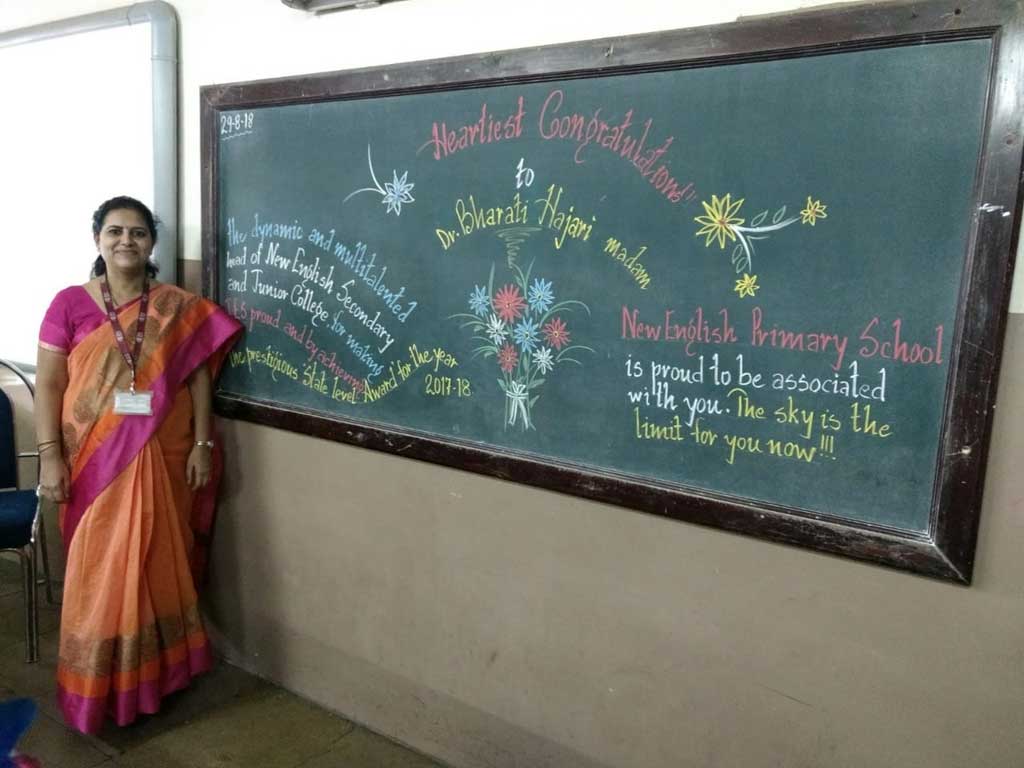 29-8-18
Heartiest Congratulations!!
to
Dr. Bharati Hajari madam
the dynamic and multitalented
head of New English Secondary
and Junior College. for making
proud and by achieving
the prestigious State level Award for the year
2017-18.
New English Primary School
is proud to be associated
with you. The sky is the
limit for you now!!!